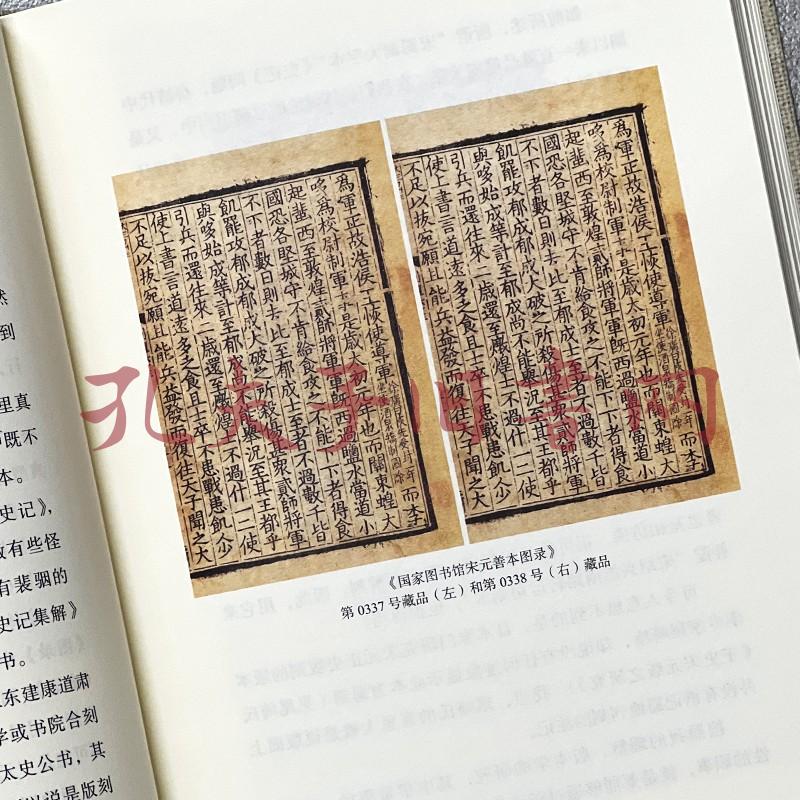 然
到
里真
既不
本。
史记》，
有些怪
有裴骃的
史记集解》
书。
东建康道肃
学或书院合刻
太史公书，其
说是版刻
為軍正故浩侯王恢使導軍而李
哆為校尉制軍事是歲太初元年也而關東蝗大
起蜚西至敦煌貳師將軍軍既西過鹽水當道小
國恐各堅城守不肯給食攻之不能下下者得食
不下者數日則去比至郁成士至者不過數千皆
飢罷攻郁成郁成大破之所殺傷甚衆貳師將軍
與哆始成等計至郁成尚不能舉況至其王都乎
引兵而還往來二歲還至敦煌士不過什一二使
使上書言道遠多乏食且士卒不患戰患飢人少
不足以拔宛願且罷兵益發而復往天子聞之大
為軍正故浩侯王恢使導軍而李
哆為校尉制軍事是歲太初元年也而關東蝗大
起蜚西至敦煌貳師將軍軍既西過鹽水當道小
國恐各堅城守不肯給食攻之不能下下者得食
不下者數日則去比至郁成士至者不過數千皆
飢罷攻郁成郁成大破之所殺傷甚衆貳師將軍
與哆始成等計至郁成尚不能舉況至其王都乎
引兵而還往來二歲還至敦煌士不過什一二使
使上書言道遠多乏食且士卒不患戰患飢人少
不足以拔宛願且罷兵益發而復往天子聞之大
《国家图书馆宋元善本图录》
第 0337 号藏品（左）和第 0338 号（右）藏品
孔夫子旧书网